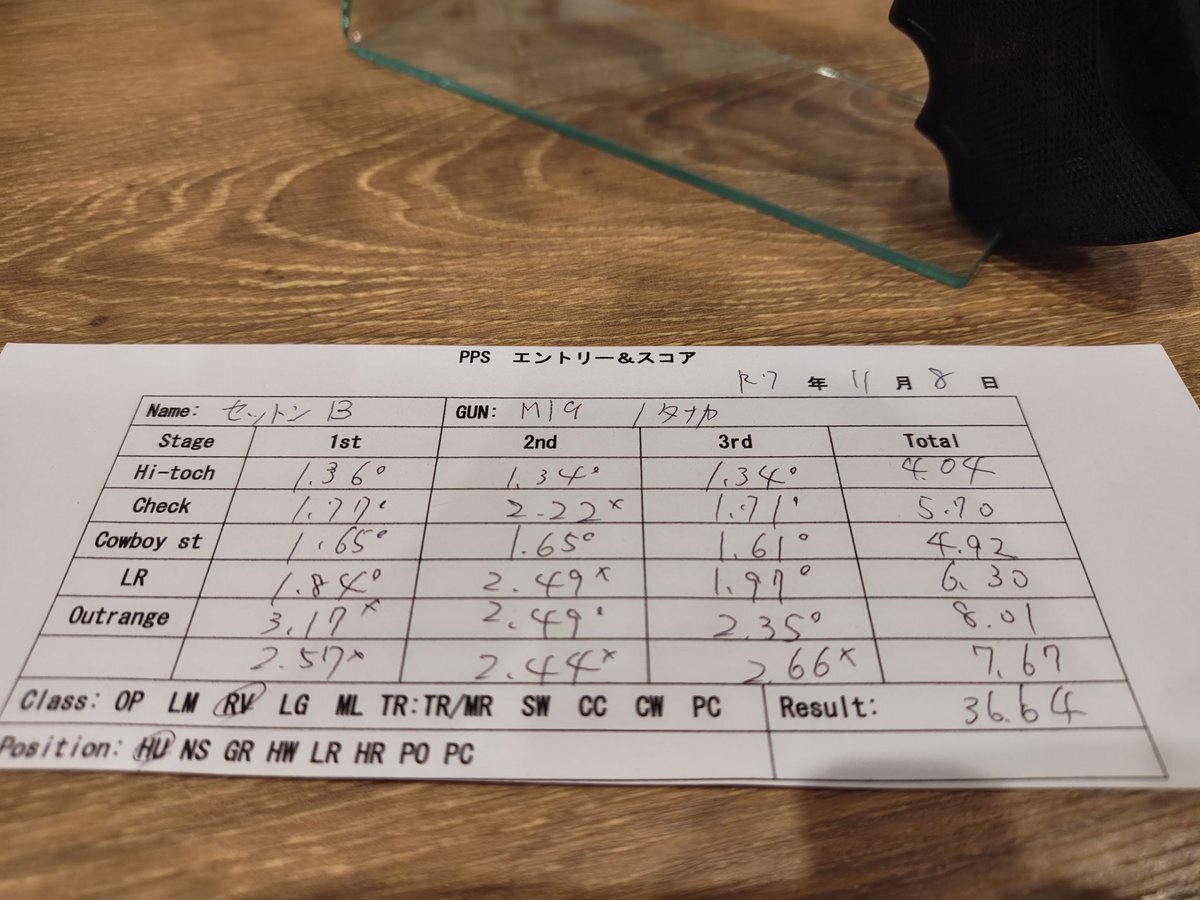 PPS エントリー&スコア
R.7 年 11 月 8 日
Name: セットン B GUN: M19 / タナカ
Stage 1st 2nd 3rd Total
Hi-toch 1.36° 1.34° 1.34° 4.04
Check 1.77° 2.22× 1.71° 5.70
Cowboy st 1.65° 1.65° 1.61° 4.92
LR 1.84° 2.49× 1.97° 6.30
Outrange 3.17× 2.49° 2.35° 8.01
2.57× 2.44× 2.66× 7.67
Class: OP LM RV LG ML TR:TR/MR SW CC CW PC Result: 36.64
Position: HU NS GR HW LR HR PO PC